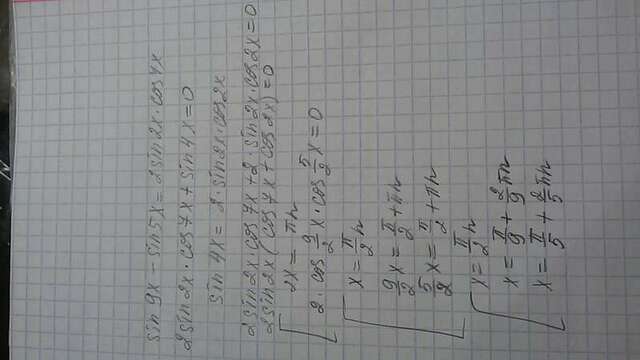 sin 9x - sin 5x = 2 sin 2x · cos 7x
2 sin 2x · cos 7x + sin 4x = 0
sin 4x = 2 · sin 2x · cos 2x
2 sin 2x · cos 7x + 2 · sin 2x · cos 2x = 0
2 sin 2x (cos 7x + cos 2x) = 0
2x = πn
2 · cos 9/2 x · cos 5/2 x = 0
x = π/2 n
9/2 x = π/2 + πn
5/2 x = π/2 + πn
x = π/2 n
x = π/9 + 2/9 πn
x = π/5 + 2/5 πn